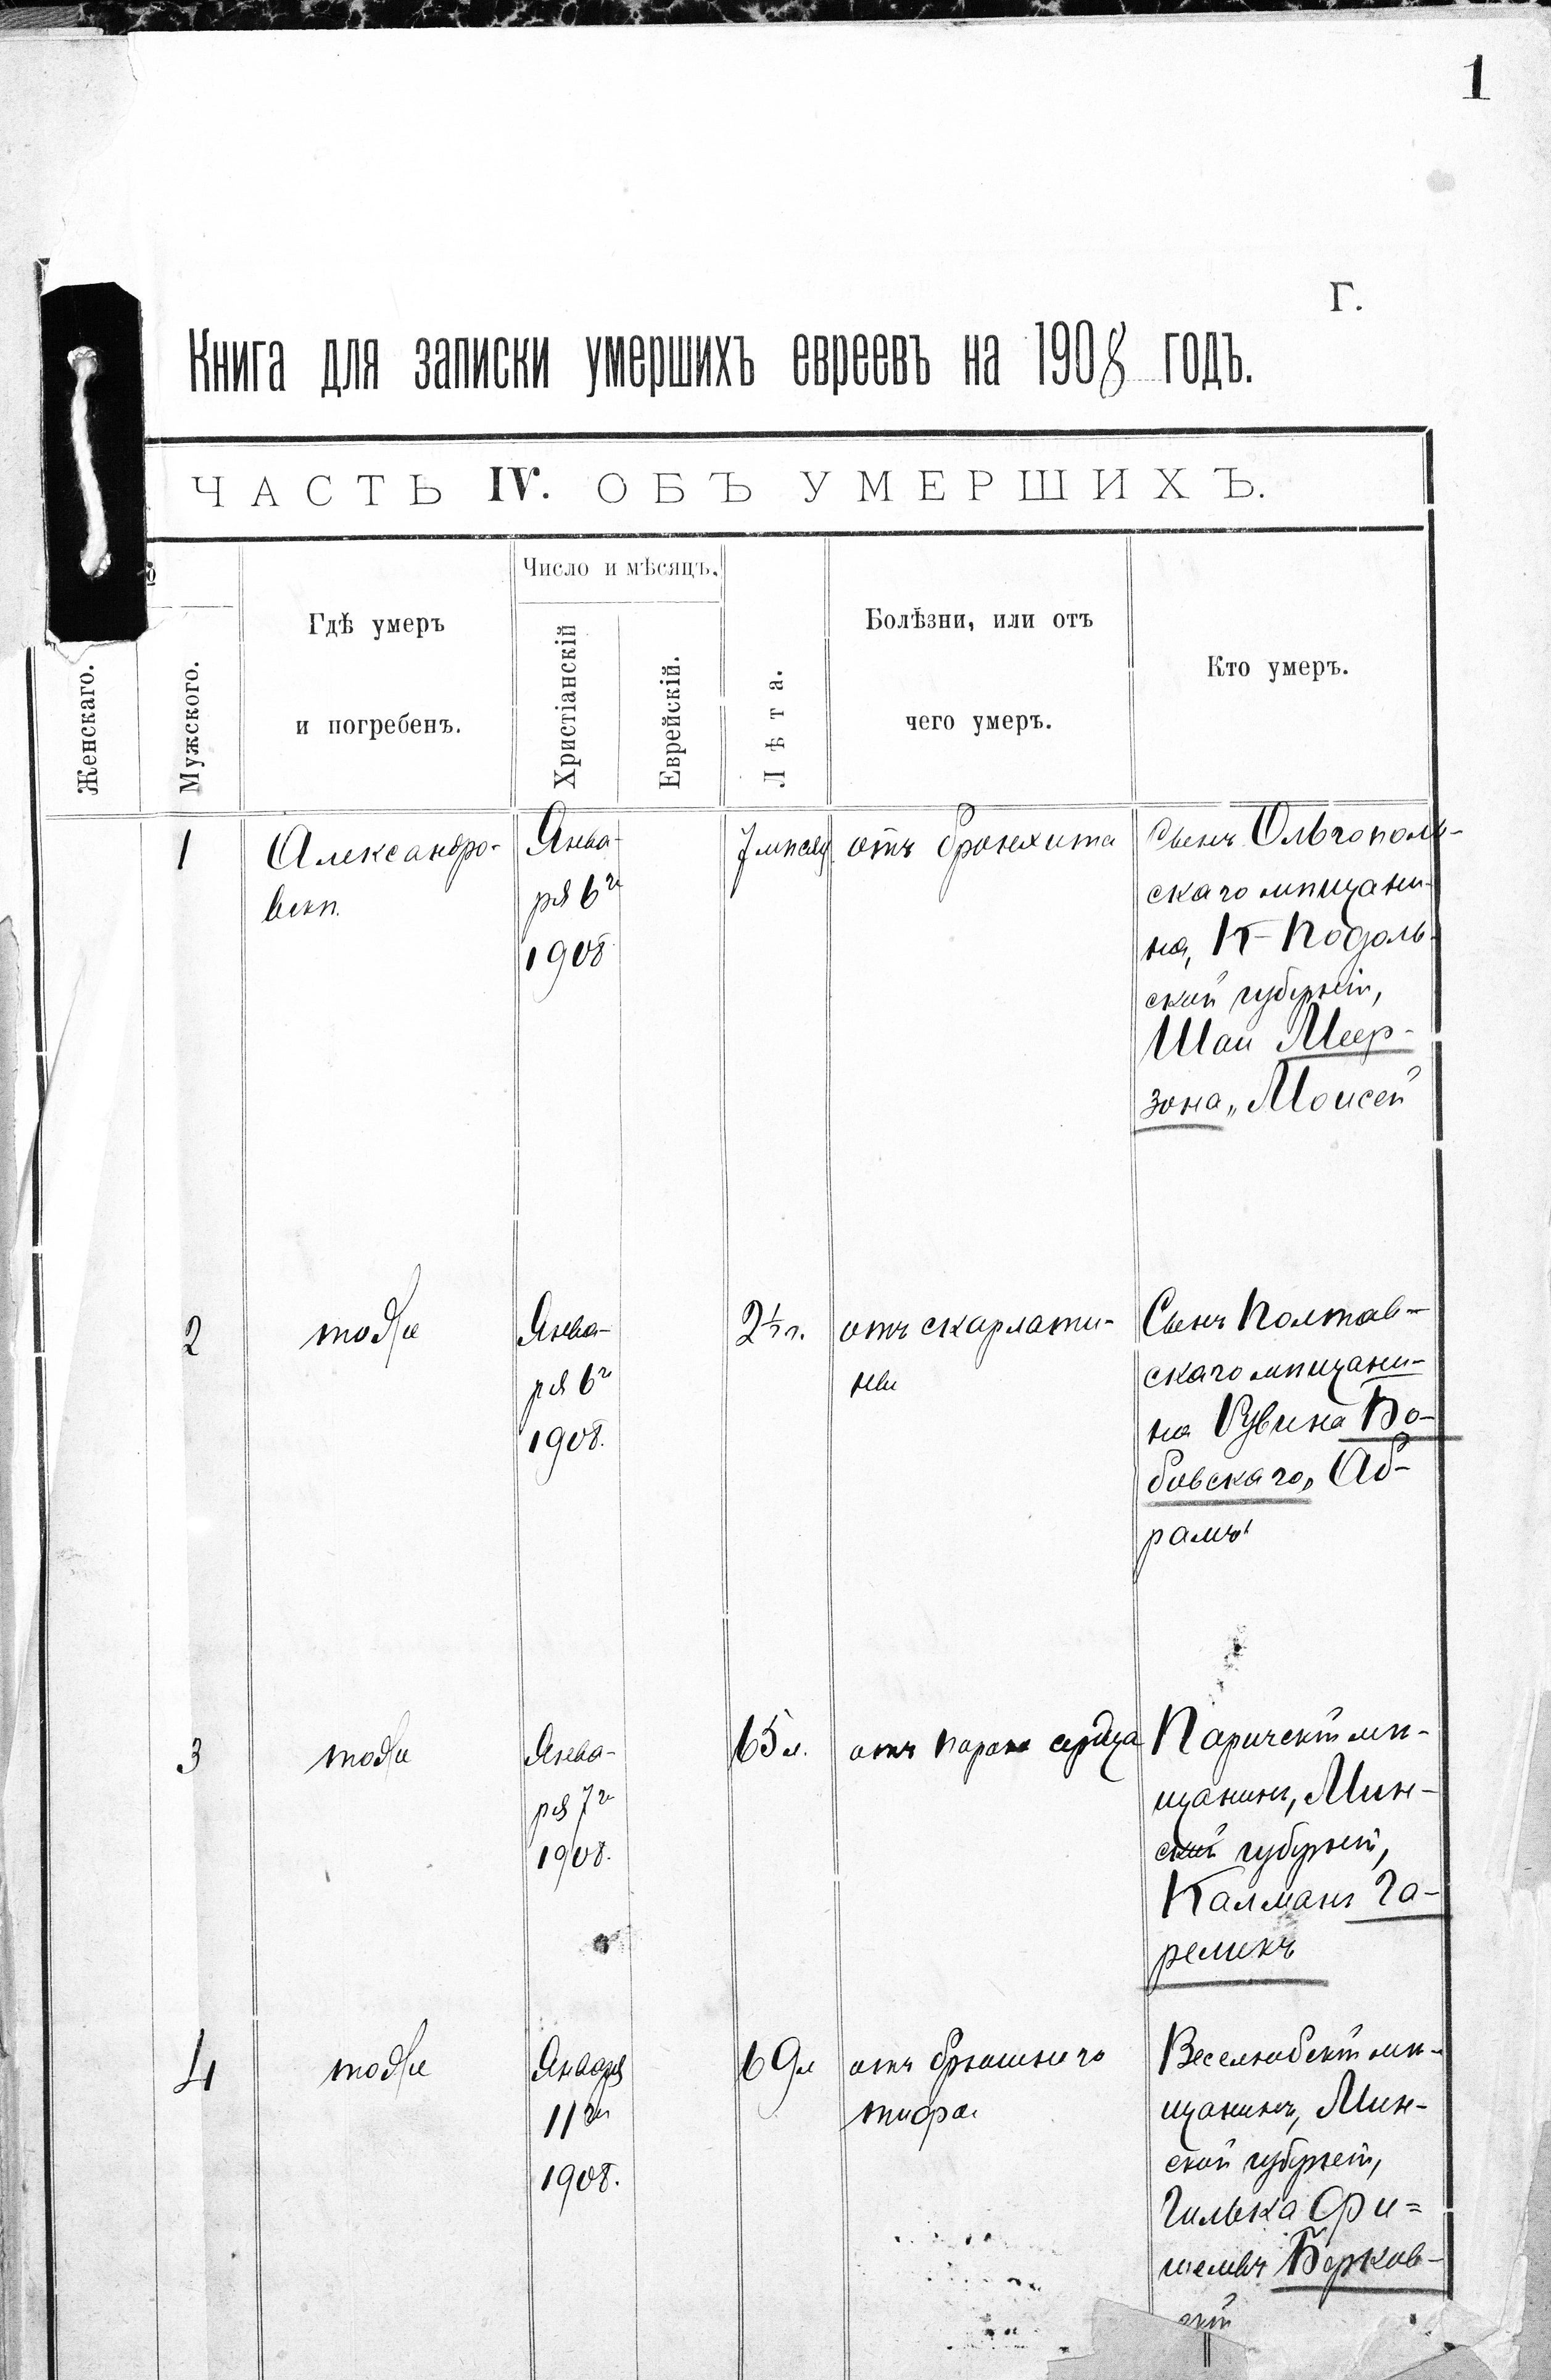 1
Г.
Книга для записки умершихъ евреевъ на 1908 годъ.
ЧАСТЬ IV. ОБЪ УМЕРШИХЪ.
Женскаго.
Мужского.
Гдѣ умеръ
и погребенъ.
Число и мѣсяцъ.
Христіанскій
Еврейскій.
Лѣта.
Болѣзни, или отъ
чего умеръ.
Кто умеръ.
1
Александро-
вскѣ.
Янва-
ря 6го
1908
7 мѣсяц
отъ бронхита
Сынъ Ольгополь-
скаго мѣщани-
на, К-Подоль-
ской губерніи,
Шаи Меер-
зона „Моисей
2
тоже
Янва-
ря 6го
1908.
2½ г.
отъ скарлати-
ны
Сынъ Полтав-
скаго мѣщани-
на Рувина Бо-
бовскаго „Аб-
рамъ"
3
тоже
Янва-
ря 7го
1908.
65 л.
отъ порока сердца
Паричскій мѣ-
щанинъ, Мин-
ской губерніи,
Калманъ Га-
реликъ
4
тоже
Января
11го
1908.
69 л
отъ брюшного
тифа.
мѣ-
щанинъ, Мин-
ской губерніи,
Гилька Фи-
шелевъ Берков-
скій